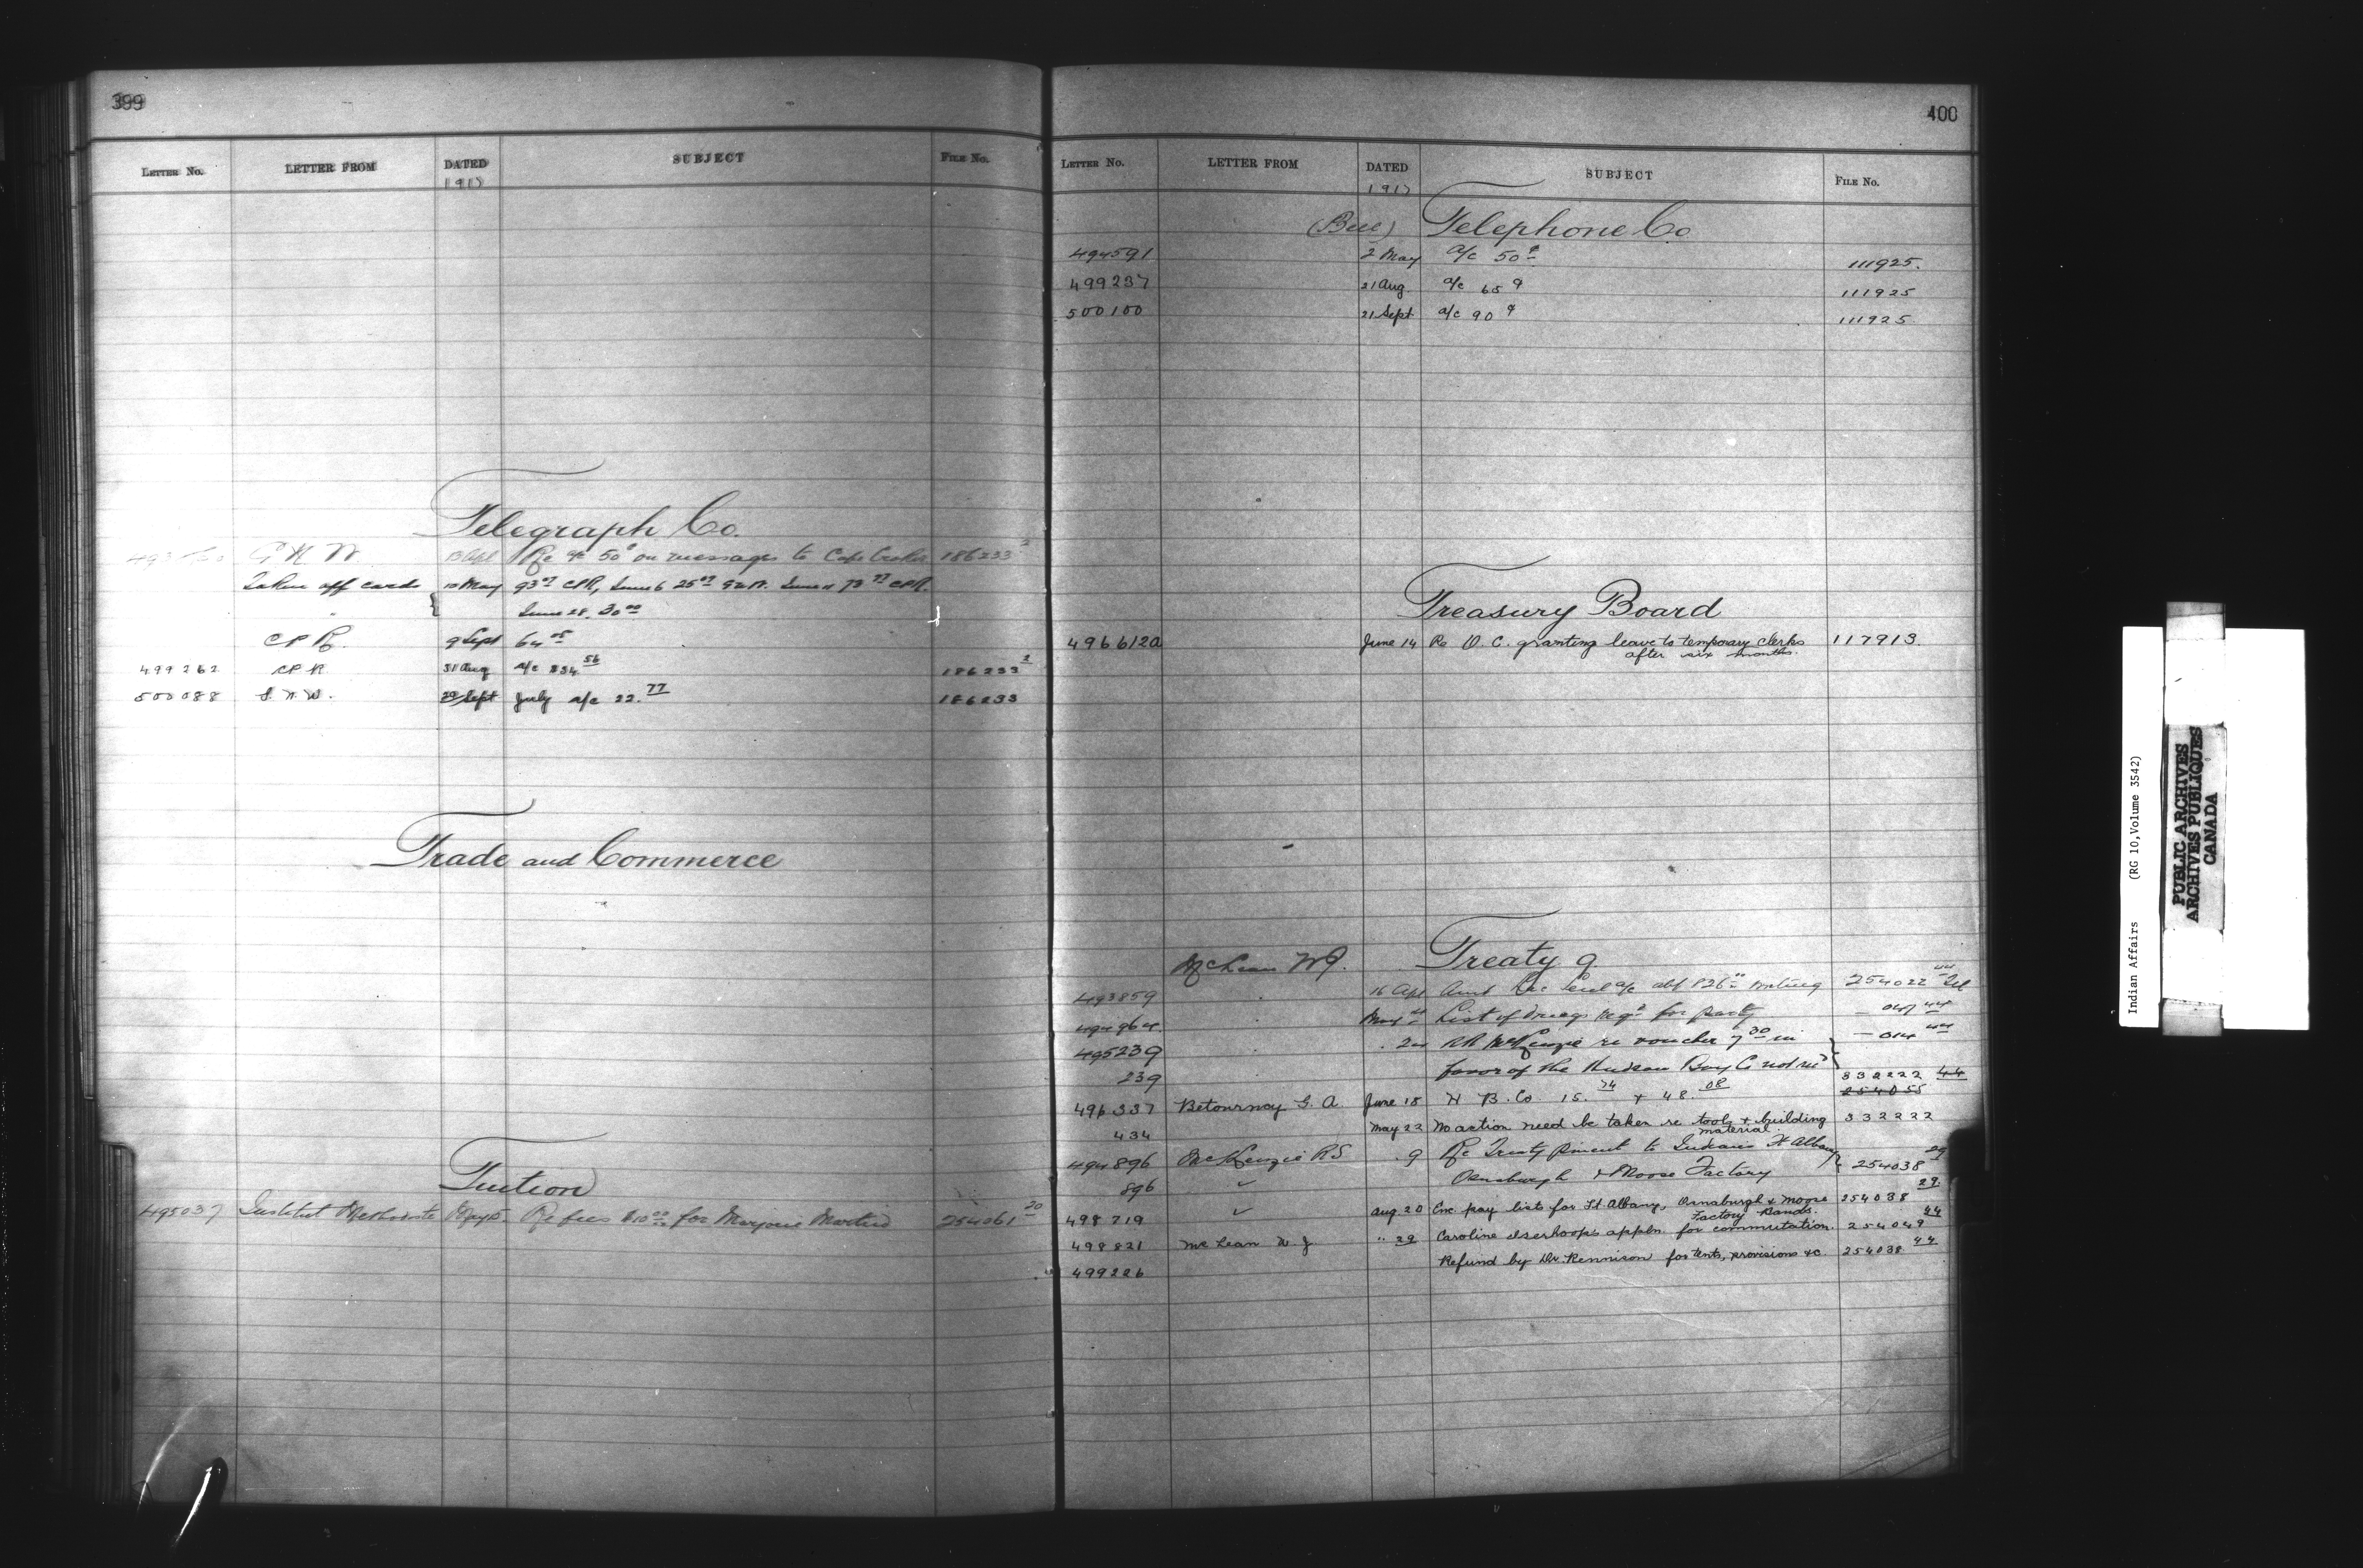 399
LETTER No. LETTER FROM DATED SUBJECT FILE No.
1917
Telegraph Co.
G N W 13 Apl Re a/c 50c on messages to Cape Croker 186233 2
Taken off cards 10 May 93.07 CPR, June 6 25.07 G.N.W. June 11 73.77 CPR.
" June 28. 30.00
C P R. 9 Sept 64.05
499262 C.P.R. 31 Aug a/c $34.56 186233 2
500088 G. N. W. 29 Sept July a/c 22.77 186233
Trade and Commerce
Tuition
495037 Institut Methodiste May 15. Re fees $10.00 for Marjorie Martin 254061 20
400
LETTER No. LETTER FROM DATED SUBJECT FILE No.
1917
(Bell) Telephone Co.
494591 2 May a/c 50c 111925.
499237 21 Aug. a/c 65 c 111925
500100 21 Sept a/c 90 c 111925.
Treasury Board
496612a June 14 Re O. C. granting leave to temporary clerks 117913.
after six months.
McLean W J. Treaty 9
493859 16 Apl a/c $26 254022 44
494964 May List of drugs reqd for party — 047 44
495239 . RR McKenzie re voucher 7.30 in } — 014 44
239 favor of the Hudson Bay Co not recd
332222 44
496337 Betournay G. A. June 18 H. B. Co. 15.74 + 48.08 254055
434 May 22 No action need be taken re tools & building 332222
material.
494896 McKenzie R S . 9 Re Treaty pment to Indians Ft Albany } 254038 29
896 " Osnaburgh & Moose Factory
498719 " Aug. 20 Enc pay lists for Ft Albany, Osnaburgh & Moose 254038 29
Factory Bands.
498821 McLean W. J. " 29 Caroline Iserhoop's appln. for commutation. 254049 44
499226 Refund by Dr. Rennison for tents, provisions &c. 254038 44
Indian Affairs (RG 10, Volume 3542)
PUBLIC ARCHIVES
ARCHIVES PUBLIQUES
CANADA